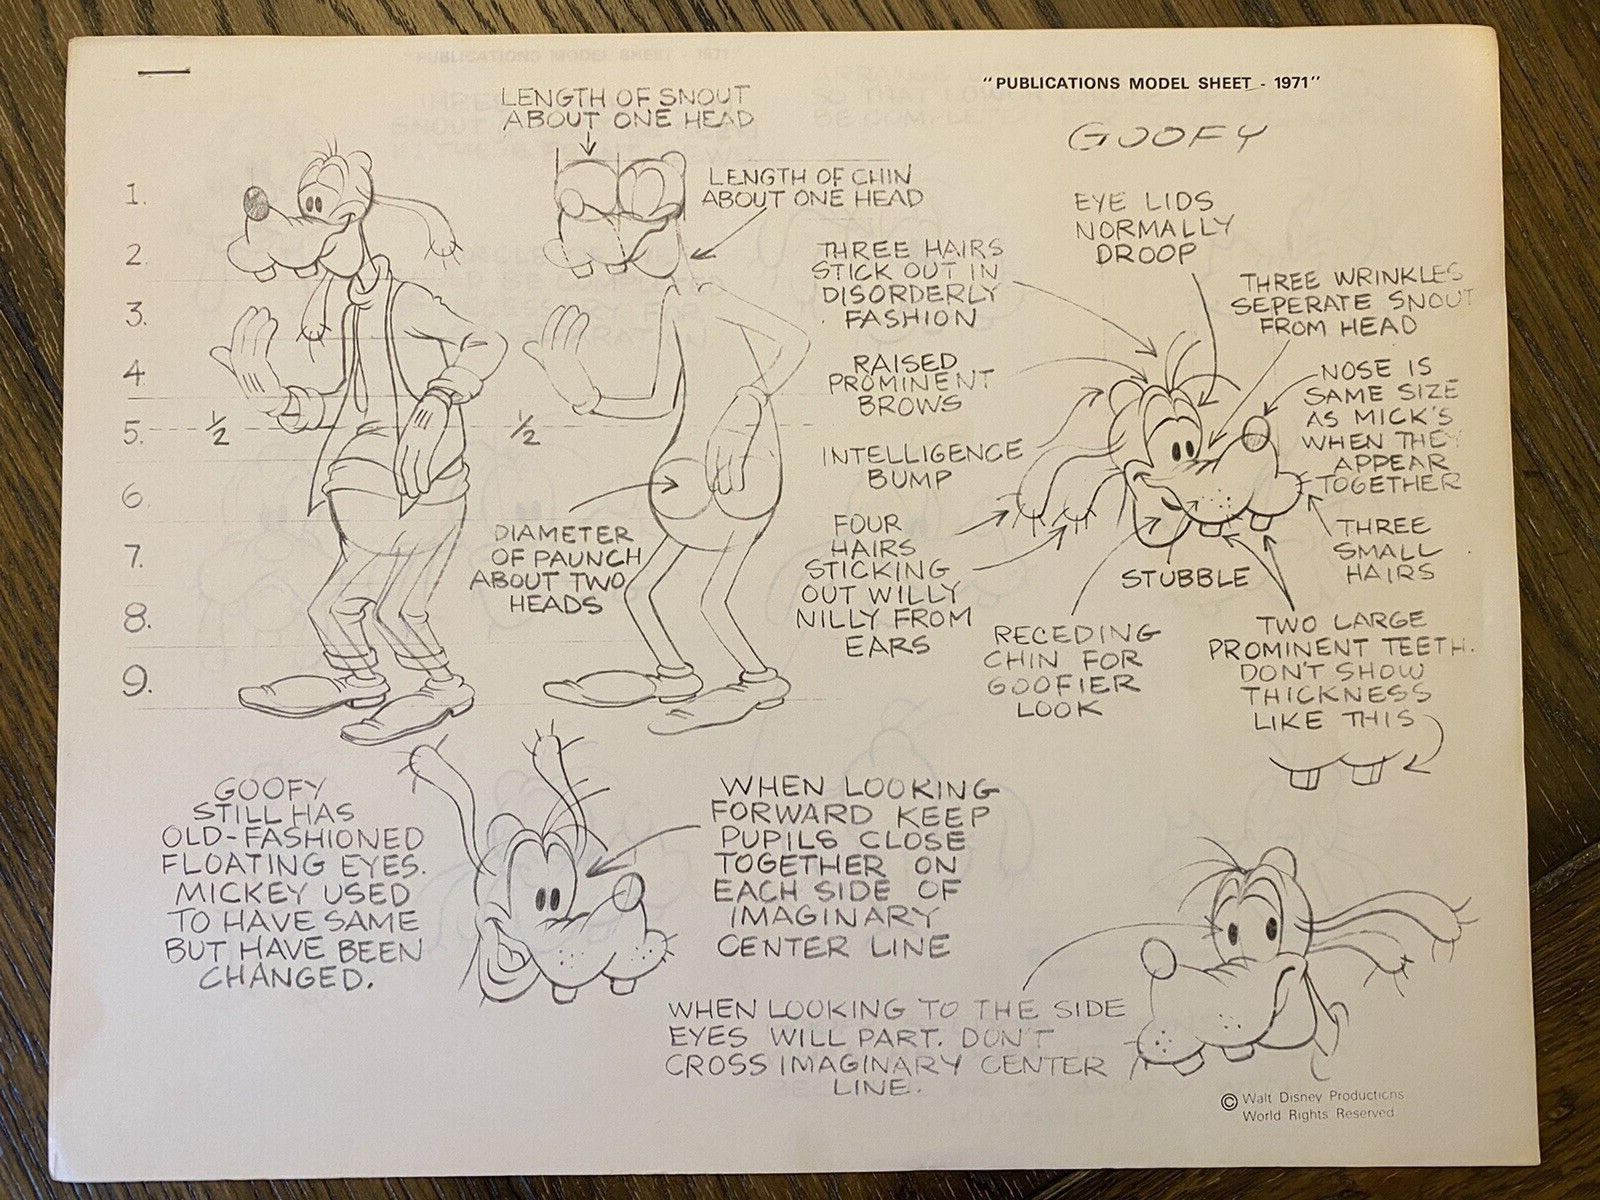 "PUBLICATIONS MODEL SHEET - 1971"
GOOFY
LENGTH OF SNOUT
ABOUT ONE HEAD
LENGTH OF CHIN
ABOUT ONE HEAD
1.
2.
3.
4
5.
6
7.
8.
9.
1/2
1/2
DIAMETER
OF PAUNCH
ABOUT TWO
HEADS
THREE HAIRS
STICK OUT IN
DISORDERLY
FASHION
RAISED
PROMINENT
BROWS
INTELLIGENCE
BUMP
FOUR
HAIRS
STICKING
OUT WILLY
NILLY FROM
EARS
EYE LIDS
NORMALLY
DROOP
THREE WRINKLES
SEPERATE SNOUT
FROM HEAD
NOSE IS
SAME SIZE
AS MICK'S
WHEN THEY
APPEAR
TOGETHER
THREE
SMALL
HAIRS
STUBBLE
RECEDING
CHIN FOR
GOOFIER
LOOK
TWO LARGE
PROMINENT TEETH.
DON'T SHOW
THICKNESS
LIKE THIS
GOOFY
STILL HAS
OLD-FASHIONED
FLOATING EYES.
MICKEY USED
TO HAVE SAME
BUT HAVE BEEN
CHANGED.
WHEN LOOKING
FORWARD KEEP
PUPILS CLOSE
TOGETHER ON
EACH SIDE OF
IMAGINARY
CENTER LINE
WHEN LOOKING TO THE SIDE
EYES WILL PART. DON'T
CROSS IMAGINARY CENTER
LINE.
© Walt Disney Productions
World Rights Reserved